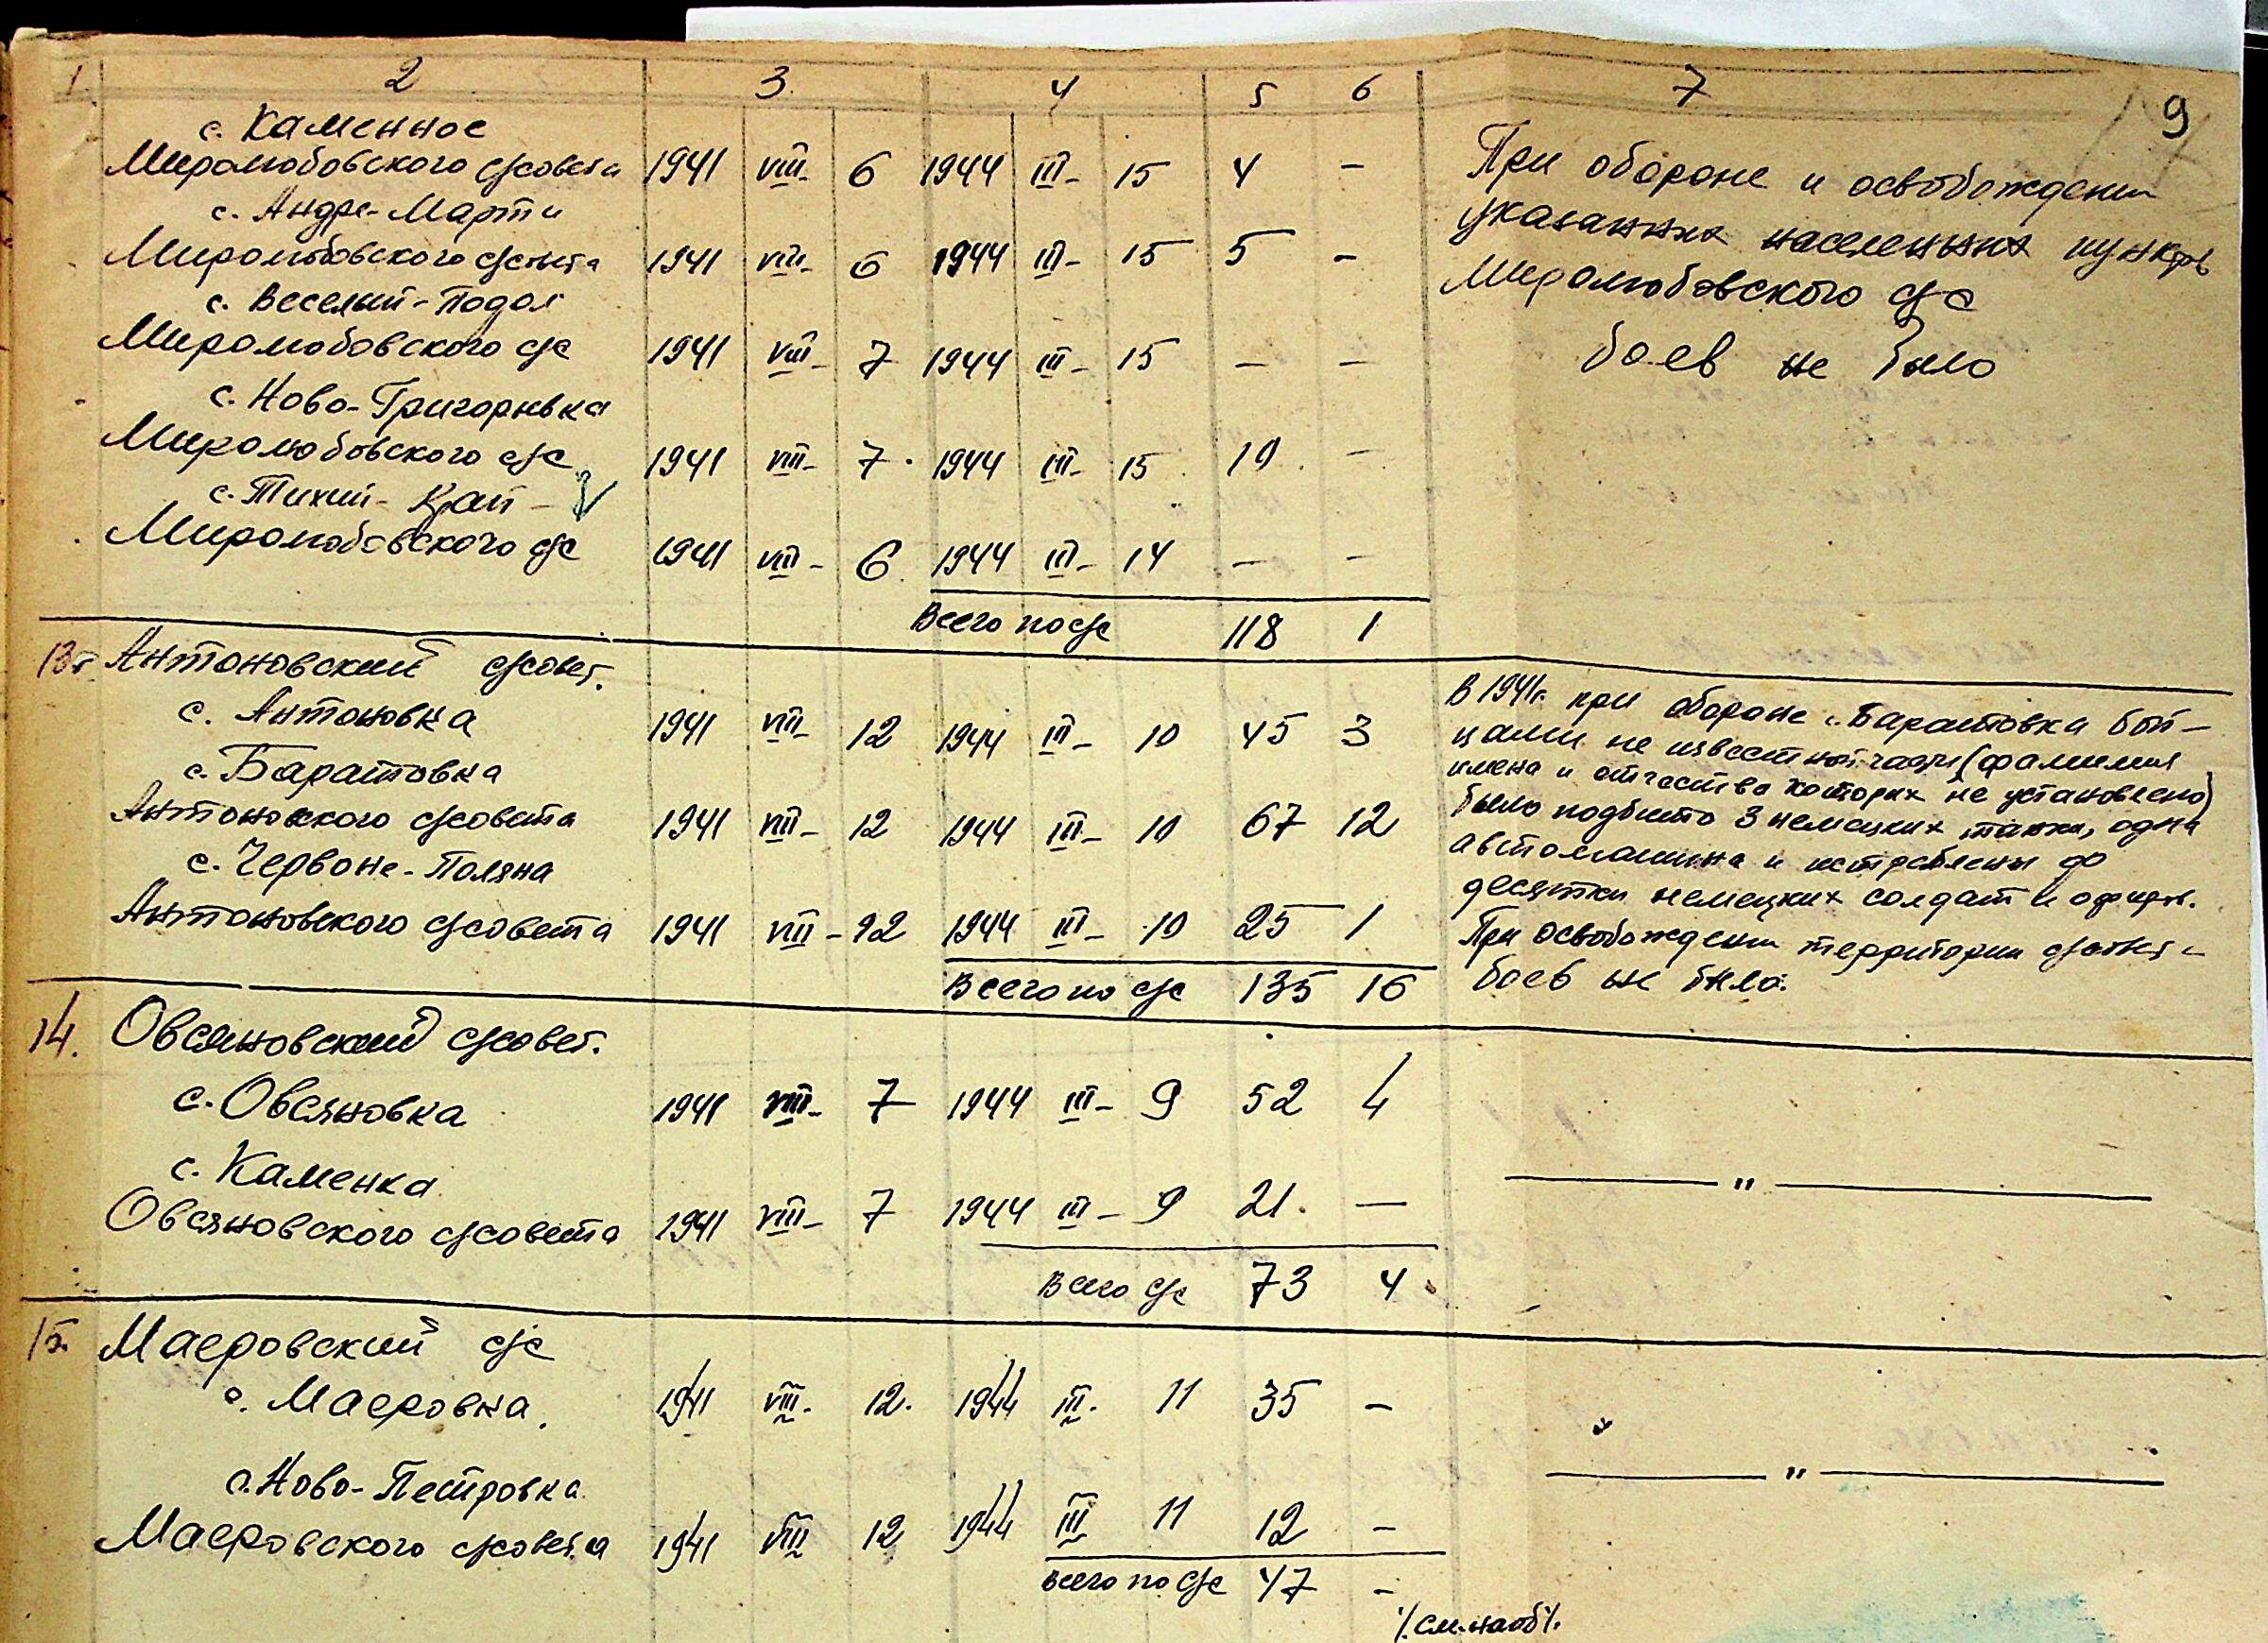 1 2 3 4 5 6 7
9
с. Каменное
Миролюбовского с/совета 1941 VIII- 6 1944 III- 15 4 -
с. Андре-Марти
Миролюбовского с/совета 1941 VIII- 6 1944 III- 15 5 -
с. Веселый-Подол
Миролюбовского с/с 1941 VIII- 7 1944 III- 15 - -
с. Ново-Григорьвка
Миролюбовского с/с 1941 VIII- 7. 1944 III- 15 19. -
с. Тихий-Край -
Миролюбовского с/с 1941 VIII- 6. 1944 III- 14 - -
Всего по с/с 118 1
При обороне и освобождении
указанных населенных пунктов
Миролюбовского с/с
боев не было
13. Антоновский с/совет.
с. Антоновка 1941 VIII- 12 1944 III- 10 45 3
с. Баратовка
Антоновского с/совета 1941 VIII- 12 1944 III- 10 67 12
с. Червоне-Поляна
Антоновского с/совета 1941 VIII- 12 1944 III- 10 25 1
Всего по с/с 135 16
В 1941г. при обороне с. Баратовка бой-
цами не известной части (фамилия
имена и отчества которых не установлено)
было подбито 3 немецких танки, одна
автомашина и истреблены до
десятки немецких солдат и офицеров.
При освобождении территории с/совета
боев не было.
14. Овсяновский с/совет.
с. Овсяновка 1941 VIII- 7 1944 III- 9 52 4
с. Каменка
Овсяновского с/совета 1941 VIII- 7 1944 III- 9 21. —
— " —
Всего с/с 73 4.
15. Маеровский с/с
с. Маеровка. 1941 VIII. 12. 1944 III. 11 35 -
с. Ново-Петровка
Маеровского с/совета 1941 VIII 12 1944 III 11 12 -
— " —
всего по с/с 47 -
/. см. на об/.